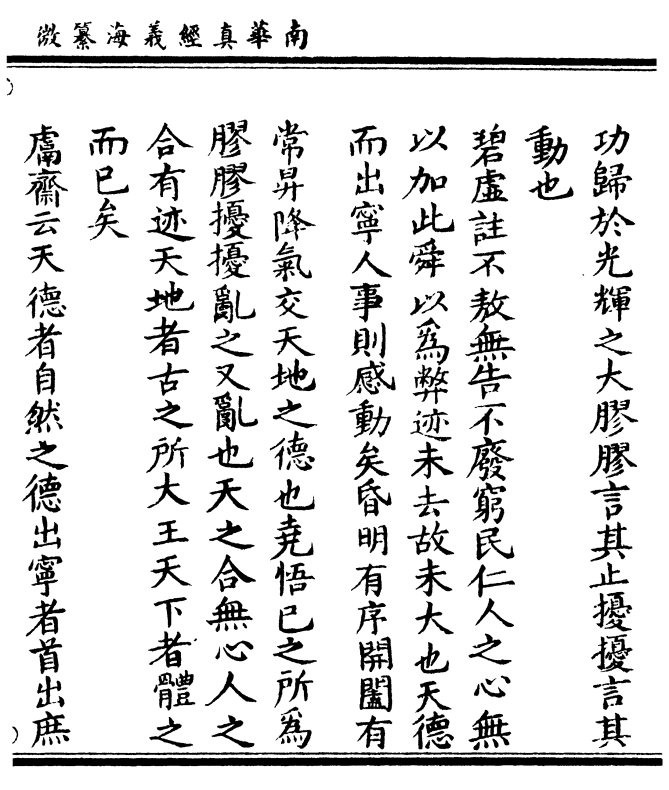 南華真經義海纂微
功歸於光輝之大膠膠言其止擾擾言其
動也
碧虛註不敖無告不廢窮民仁人之心無
以加此舜以爲弊迹未去故未大也天德
而出寧人事則感動矣昏明有序開闔有
常昇降氣交天地之德也堯悟已之所爲
膠膠擾擾亂之又亂也天之合無心人之
合有迹天地者古之所大王天下者體之
而已矣
鬳齋云天德者自然之德出寧者首出庶